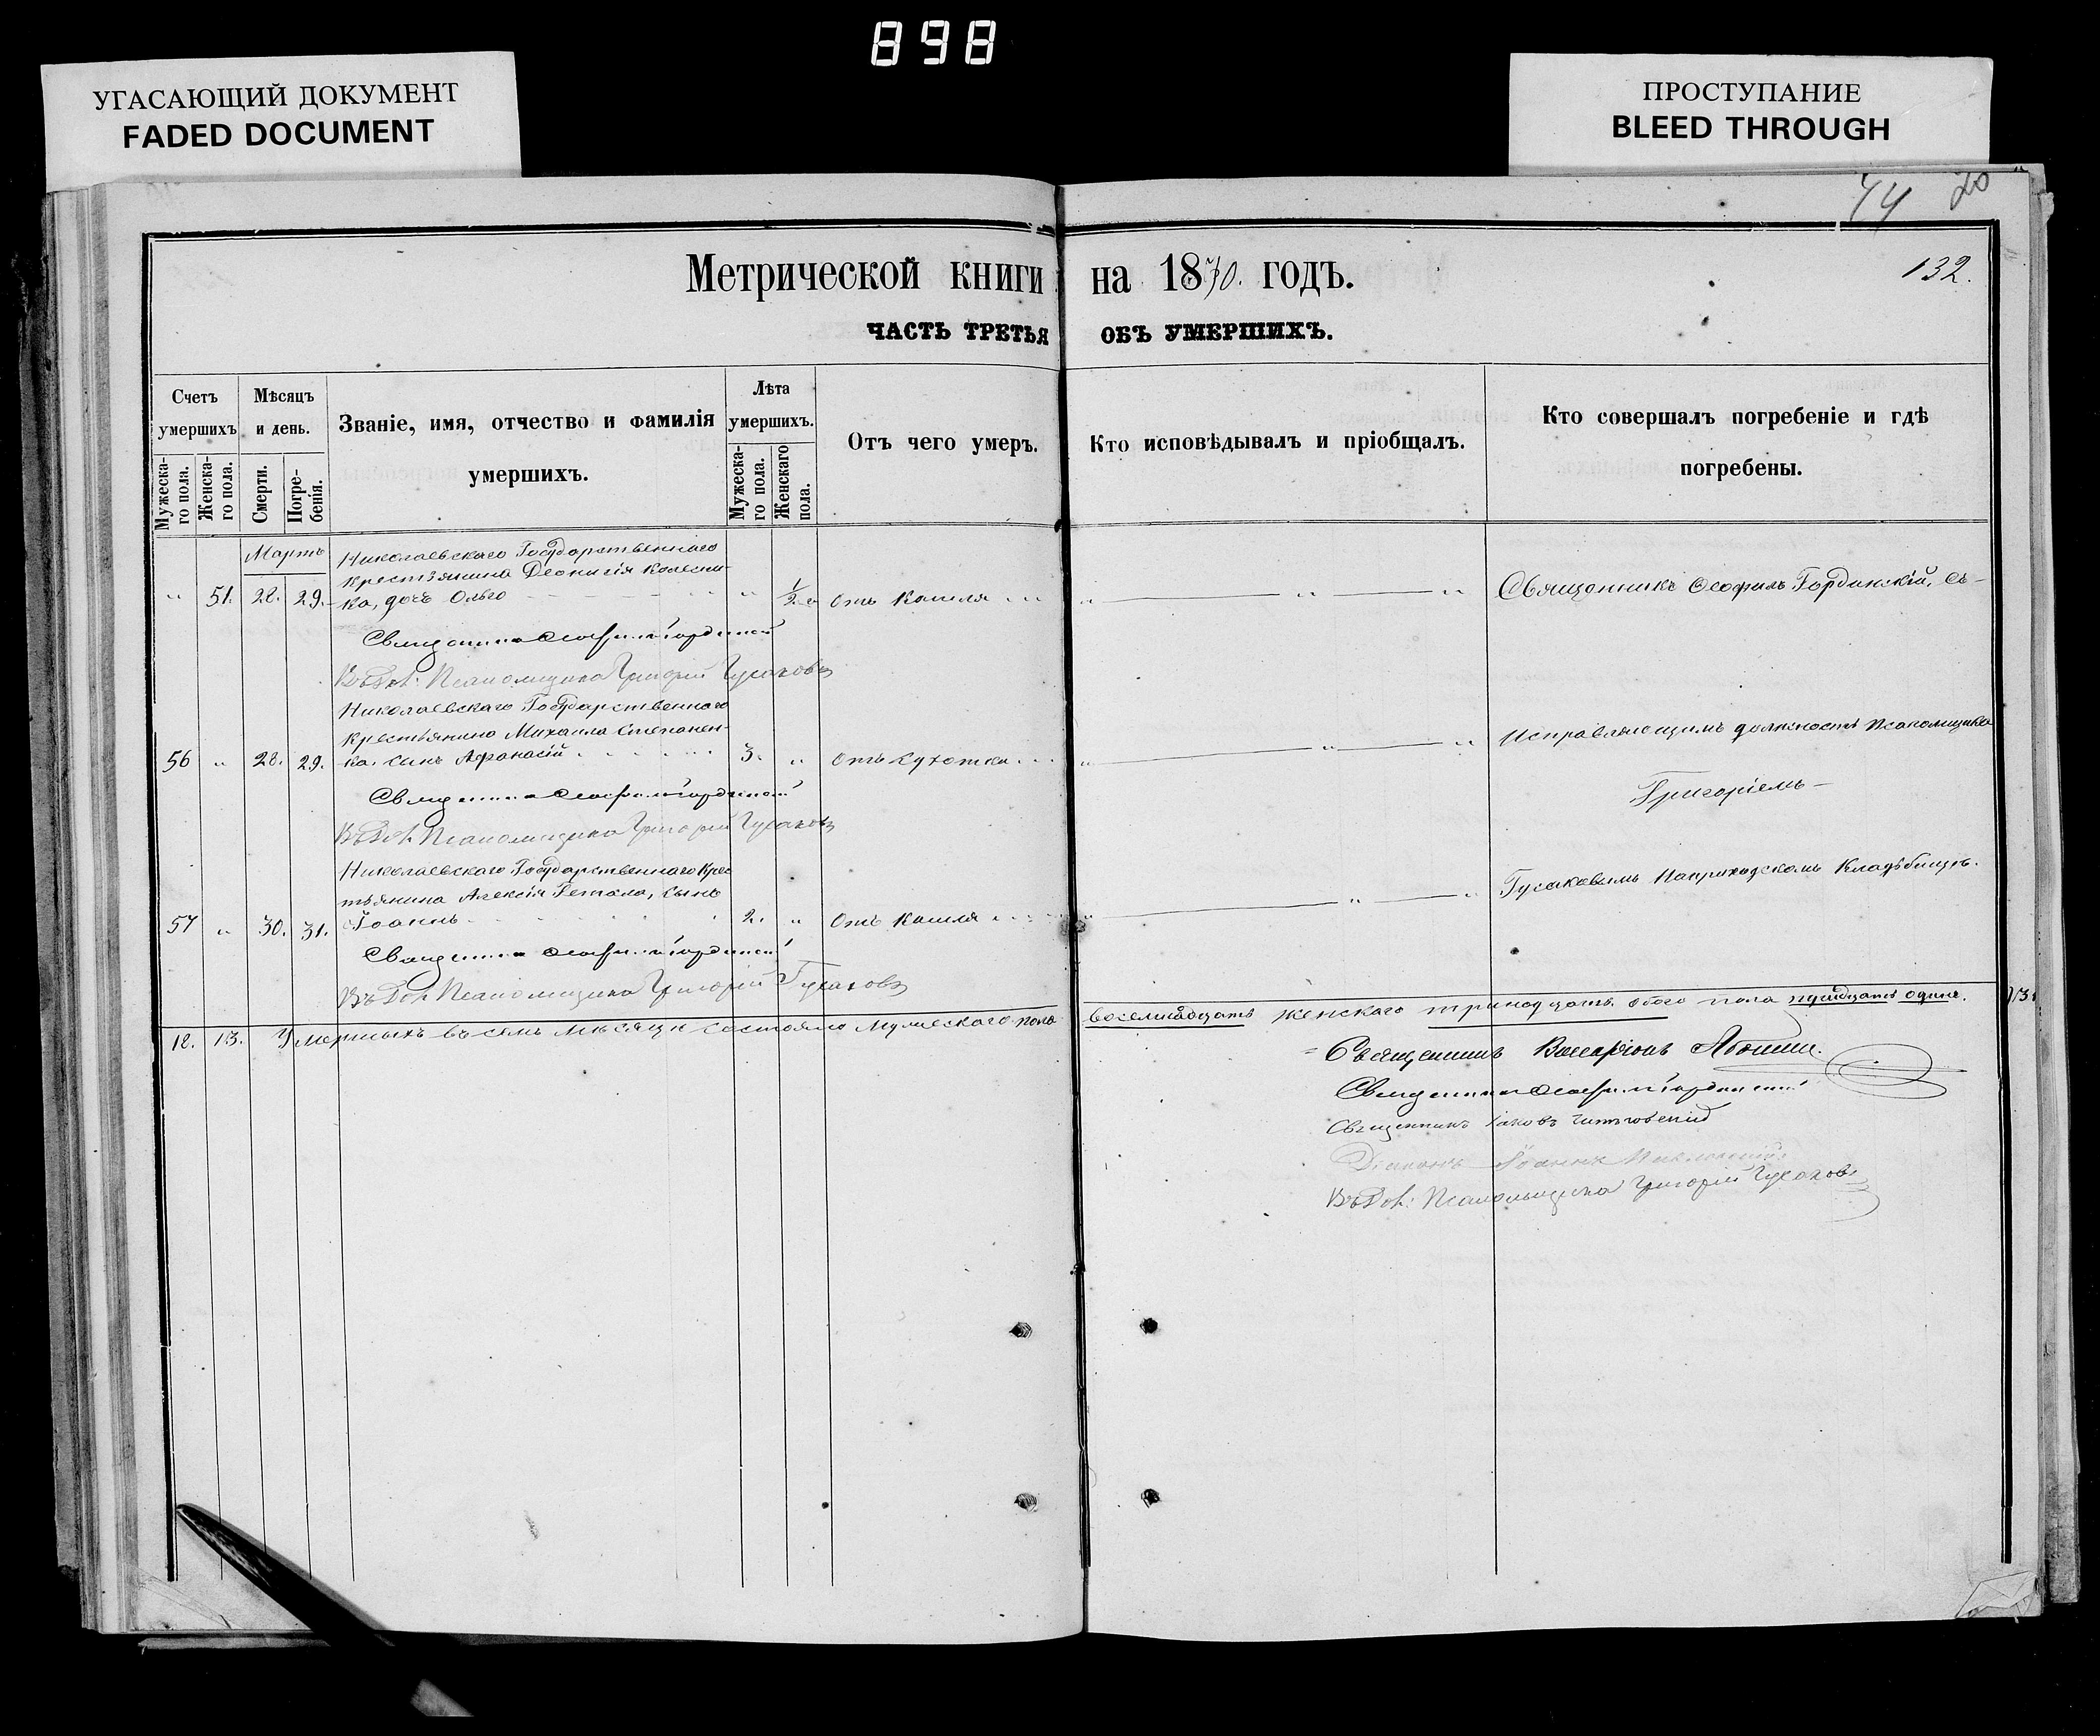 898
УГАСАЮЩИЙ ДОКУМЕНТ
FADED DOCUMENT
ПРОСТУПАНИЕ
BLEED THROUGH
74 20
Метрической книги на 1870. годъ.
132.
ЧАСТЬ ТРЕТЬЯ ОБЪ УМЕРШИХЪ.
Счетъ умершихъ
Мужеска-го пола.
Женска-го пола.
Мѣсяцъ и день.
Смерти.
Погре-бенія.
Званіе, имя, отчество и фамилія
умершихъ.
Лѣта умершихъ.
Мужеска-го пола.
Женскаго пола.
Отъ чего умеръ.
Кто исповѣдывалъ и пріобщалъ.
Кто совершалъ погребеніе и гдѣ
погребены.
Мартъ
Николаевскаго Государственнаго
крестьянина Деонисія Колесни-
" 51. 28. 29. ка, дочь Ольга " 1/2 Отъ кашля " " "
Священникъ Ѳеофилъ Гординскій, съ-
Священникъ Ѳеофилъ Гординскій
Въ Дол. Псаломщика Григорій Гусаковъ
Николаевскаго Государственнаго
крестьянина Михаила Степанен-
56 " 28. 29. ка, сынъ Афанасій 3. " Отъ сухотки " " "
Исправляющимъ должность Псаломщика
Григоріемъ
Священникъ Ѳеофилъ Гординскій
Въ Дол. Псаломщика Григорій Гусаковъ
Николаевскаго Государственнаго Крес
тьянина Алексія Гетала, сынъ
57 " 30. 31. Іоаннъ 2. " Отъ кашля " " "
Гусаковымъ на приходскомъ кладбищѣ.
Священникъ Ѳеофилъ Гординскій
Въ Дол. Псаломщика Григорій Гусаковъ
18. 13. Умершихъ въ семъ мѣсяцѣ состояло мужескаго пола восемнадцать женскаго тринадцать обоего пола тридцать одинъ.
Священникъ Виссаріонъ
Священникъ Ѳеофилъ Гординскій
Священникъ Іаковъ
Діаконъ Іоаннъ
Въ Дол. Псаломщика Григорій Гусаковъ